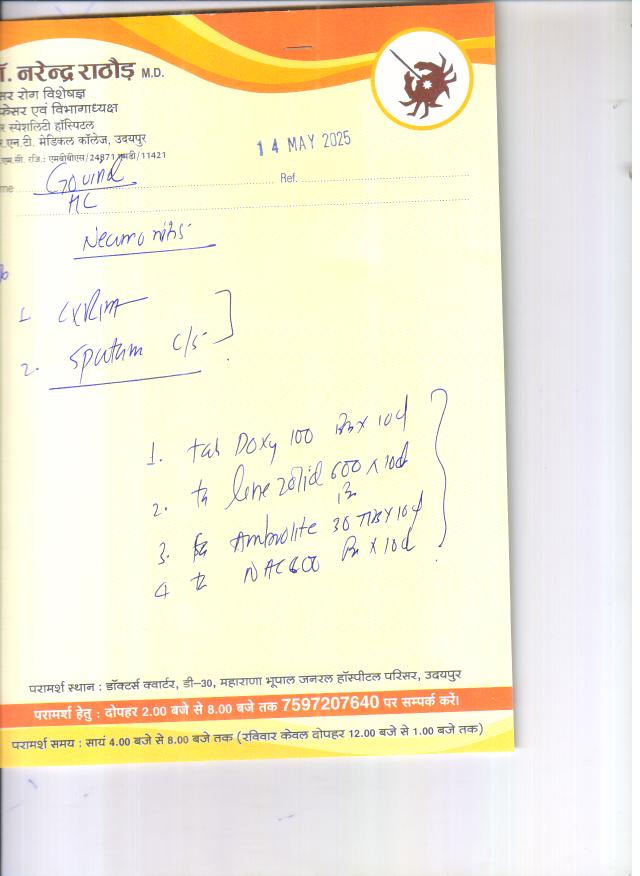 ॉ. नरेन्द्र राठौड़ M.D.
सर रोग विशेषज्ञ
फेसर एवं विभागाध्यक्ष
र स्पेशलिटी हॉस्पिटल
र.एन.टी. मेडिकल कॉलेज, उदयपुर
.एम.सी. रजि.: एमबीबीएस/24871 एमडी/11421
14 MAY 2025
me Govind Ref.
HC
Neumonitis
1. CXR
2. Sputum C/S
1. tab Doxy 100 x 10d
2. Linezolid 600 x 10d
3. Ambrolite 30 x 10d
4. NAC 600 x 10d
परामर्श स्थान : डॉक्टर्स क्वार्टर, डी-30, महाराणा भूपाल जनरल हॉस्पीटल परिसर, उदयपुर
परामर्श हेतु : दोपहर 2.00 बजे से 8.00 बजे तक 7597207640 पर सम्पर्क करें।
परामर्श समय : सायं 4.00 बजे से 8.00 बजे तक (रविवार केवल दोपहर 12.00 बजे से 1.00 बजे तक)